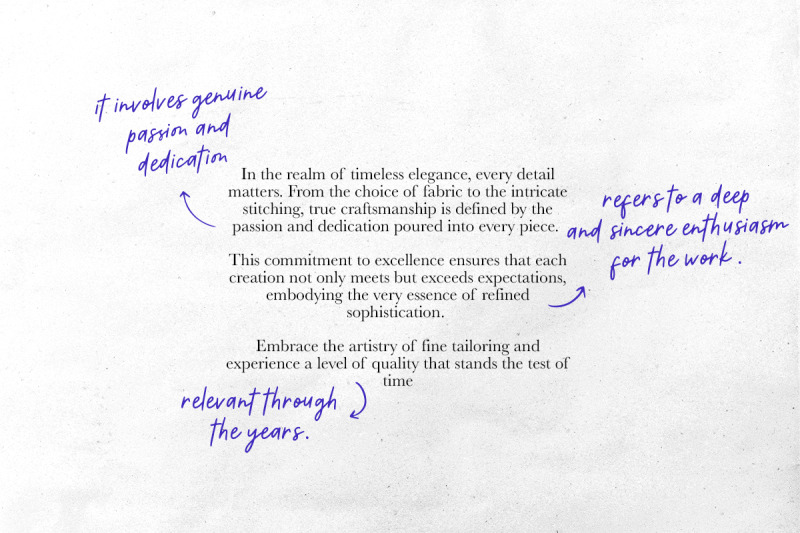 it involves genuine
passion and
dedication
In the realm of timeless elegance, every detail
matters. From the choice of fabric to the intricate
stitching, true craftsmanship is defined by the
passion and dedication poured into every piece.
refers to a deep
and sincere enthusiasm
for the work.
This commitment to excellence ensures that each
creation not only meets but exceeds expectations,
embodying the very essence of refined
sophistication.
Embrace the artistry of fine tailoring and
experience a level of quality that stands the test of
time
relevant through
the years.